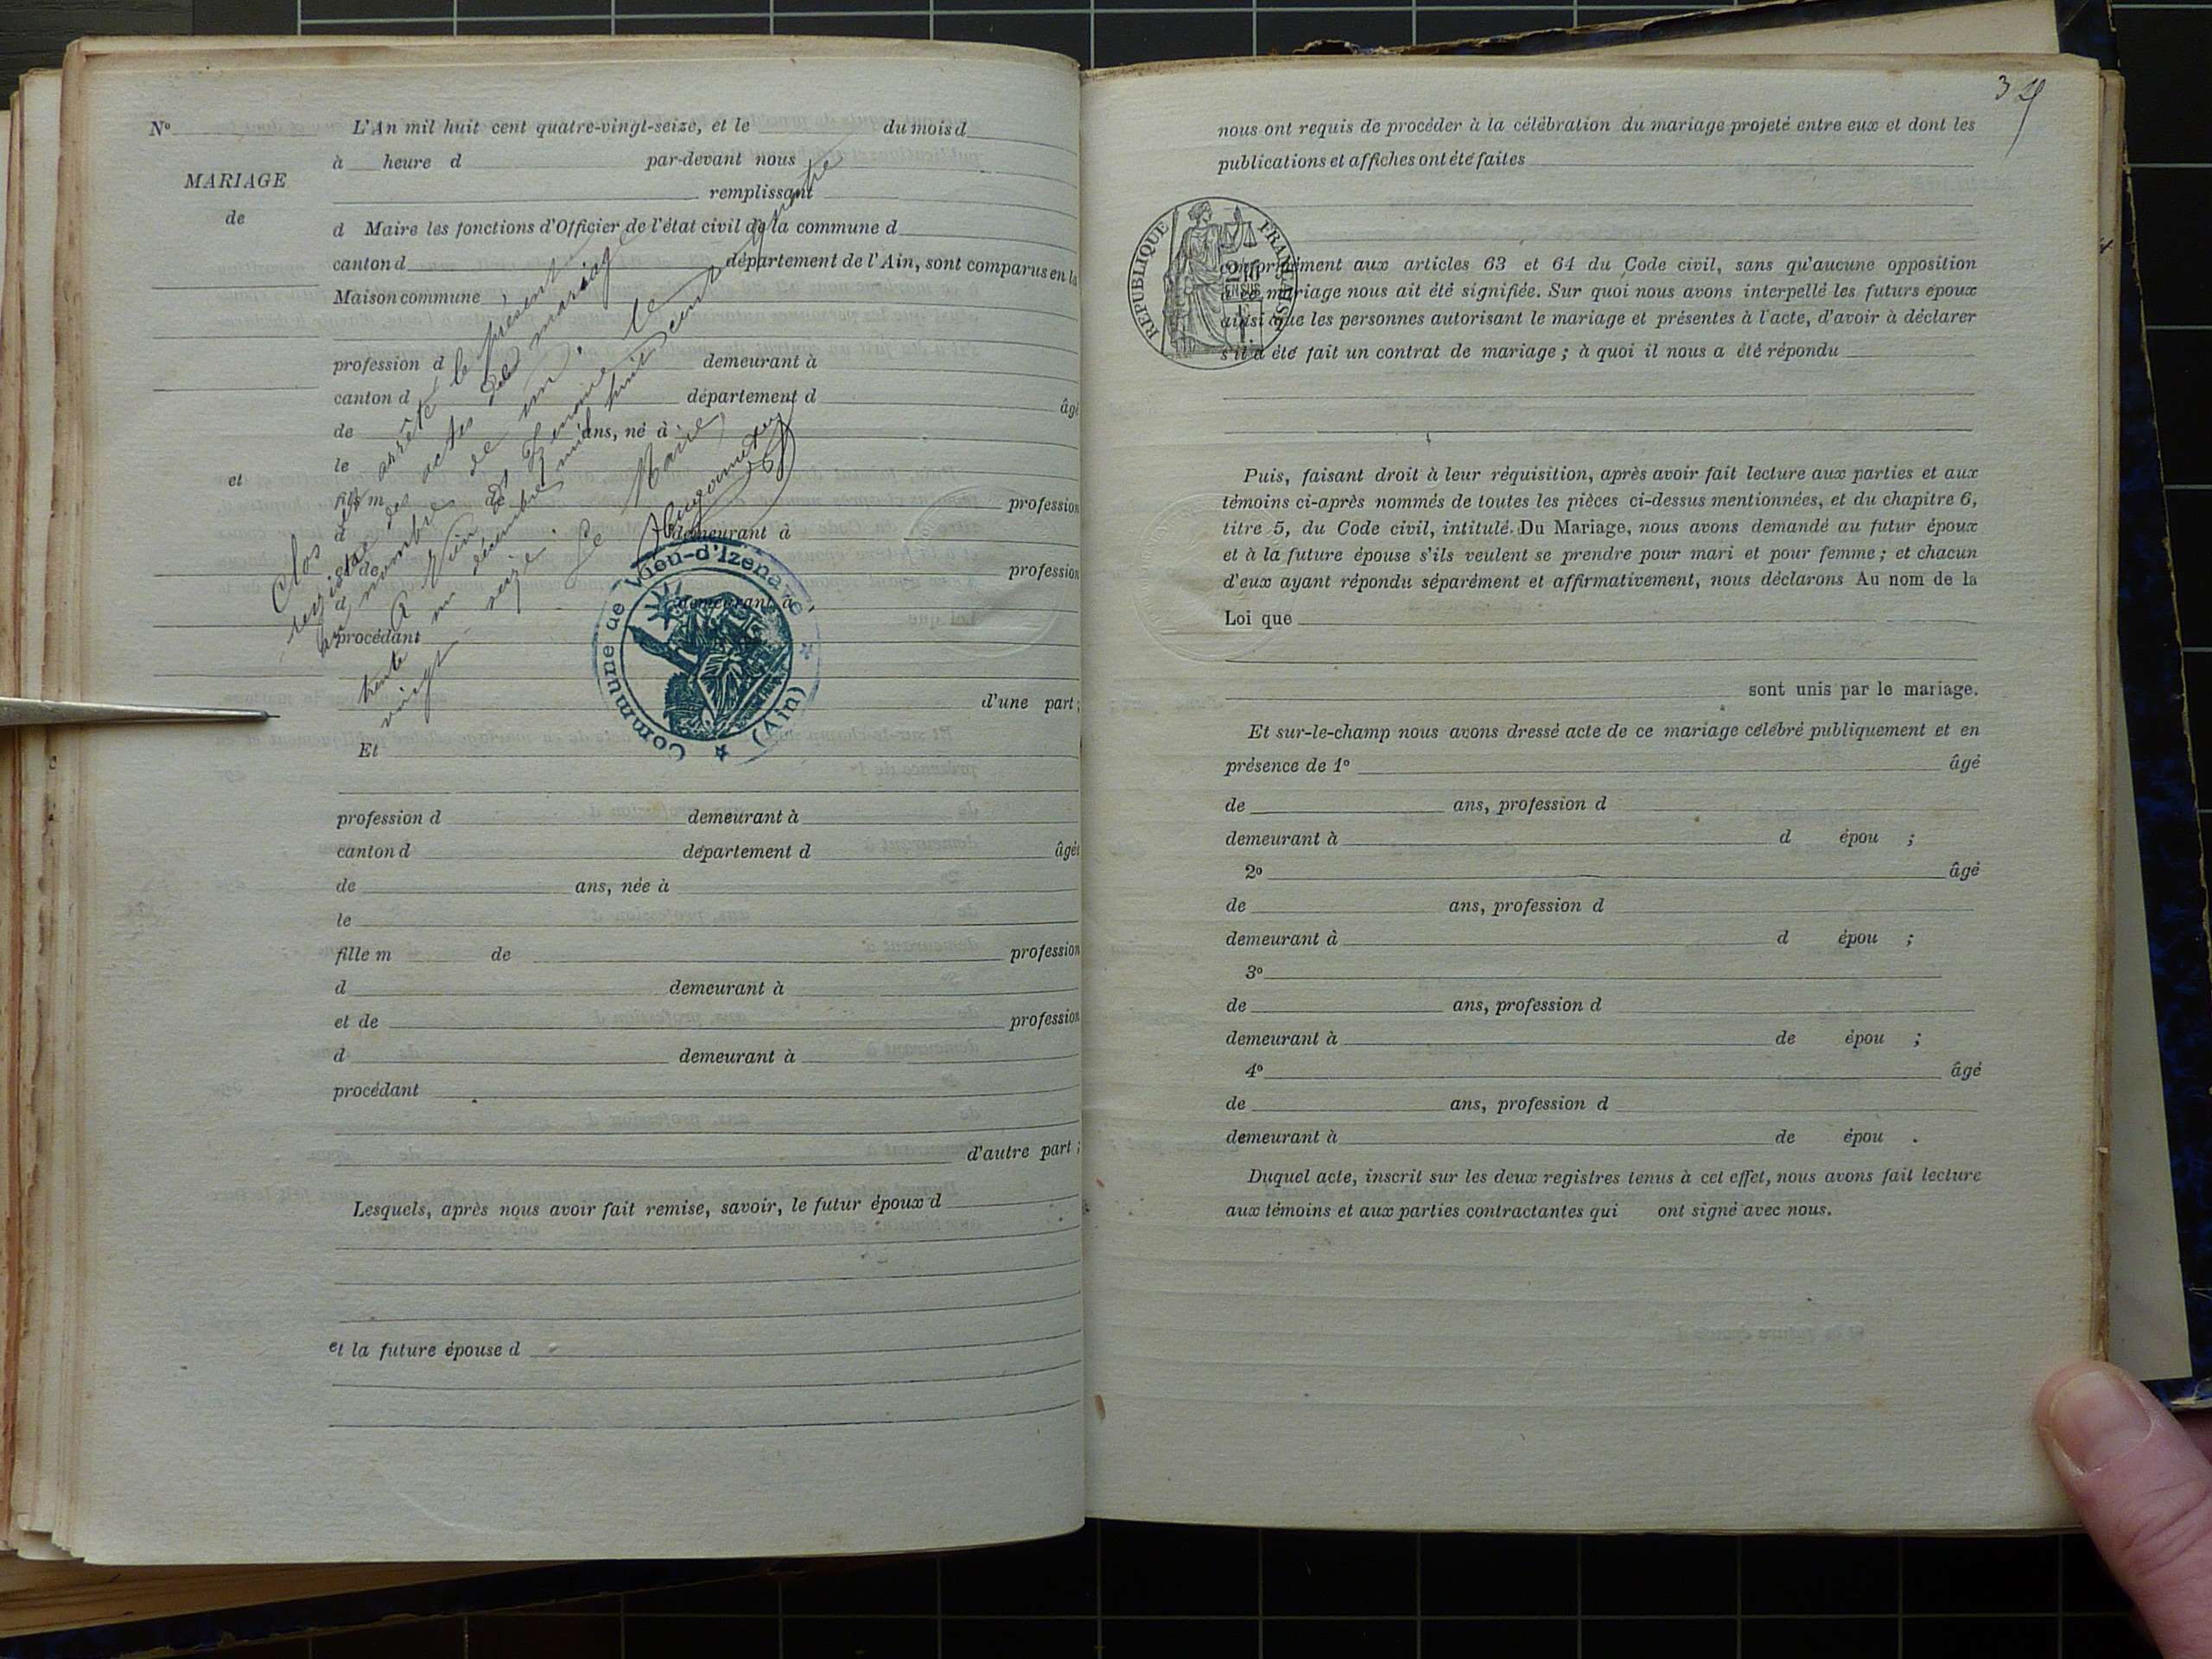 Nº
MARIAGE
de
et
L'An mil huit cent quatre-vingt-seize, et le du mois d
à heure d par-devant nous
remplissant
d Maire les fonctions d'Officier de l'état civil de la commune d
canton d département de l'Ain, sont comparus en la
Maison commune
profession d demeurant à
canton d département d âgé
de ans, né à
le
fils m de profession
d demeurant à
et de profession
d demeurant à
procédant
d'une part;
Et
profession d demeurant à
canton d département d âgé
de ans, née à
le
fille m de profession
d demeurant à
et de profession
d demeurant à
procédant
d'autre part;
Lesquels, après nous avoir fait remise, savoir, le futur époux d
et la future épouse d
Clos et arrêté le présent
registre des actes de mariage
au nombre de un.
A Vieu d'Izenave le
trente un décembre mil huit cent quatre
vingt seize.
Le Maire,
Commune de Vieu-d'Izenave
(Ain)
34
nous ont requis de procéder à la célébration du mariage projeté entre eux et dont les
publications et affiches ont été faites
REPUBLIQUE FRANÇAISE
conformément aux articles 63 et 64 du Code civil, sans qu'aucune opposition
à ce mariage nous ait été signifiée. Sur quoi nous avons interpellé les futurs époux
ainsi que les personnes autorisant le mariage et présentes à l'acte, d'avoir à déclarer
s'il a été fait un contrat de mariage; à quoi il nous a été répondu
Puis, faisant droit à leur réquisition, après avoir fait lecture aux parties et aux
témoins ci-après nommés de toutes les pièces ci-dessus mentionnées, et du chapitre 6,
titre 5, du Code civil, intitulé Du Mariage, nous avons demandé au futur époux
et à la future épouse s'ils veulent se prendre pour mari et pour femme; et chacun
d'eux ayant répondu séparément et affirmativement, nous déclarons Au nom de la
Loi que
sont unis par le mariage.
Et sur-le-champ nous avons dressé acte de ce mariage célébré publiquement et en
présence de 1º âgé
de ans, profession d
demeurant à d épou ;
2º âgé
de ans, profession d
demeurant à d épou ;
3º
de ans, profession d
demeurant à de épou ;
4º âgé
de ans, profession d
demeurant à de épou .
Duquel acte, inscrit sur les deux registres tenus à cet effet, nous avons fait lecture
aux témoins et aux parties contractantes qui ont signé avec nous.